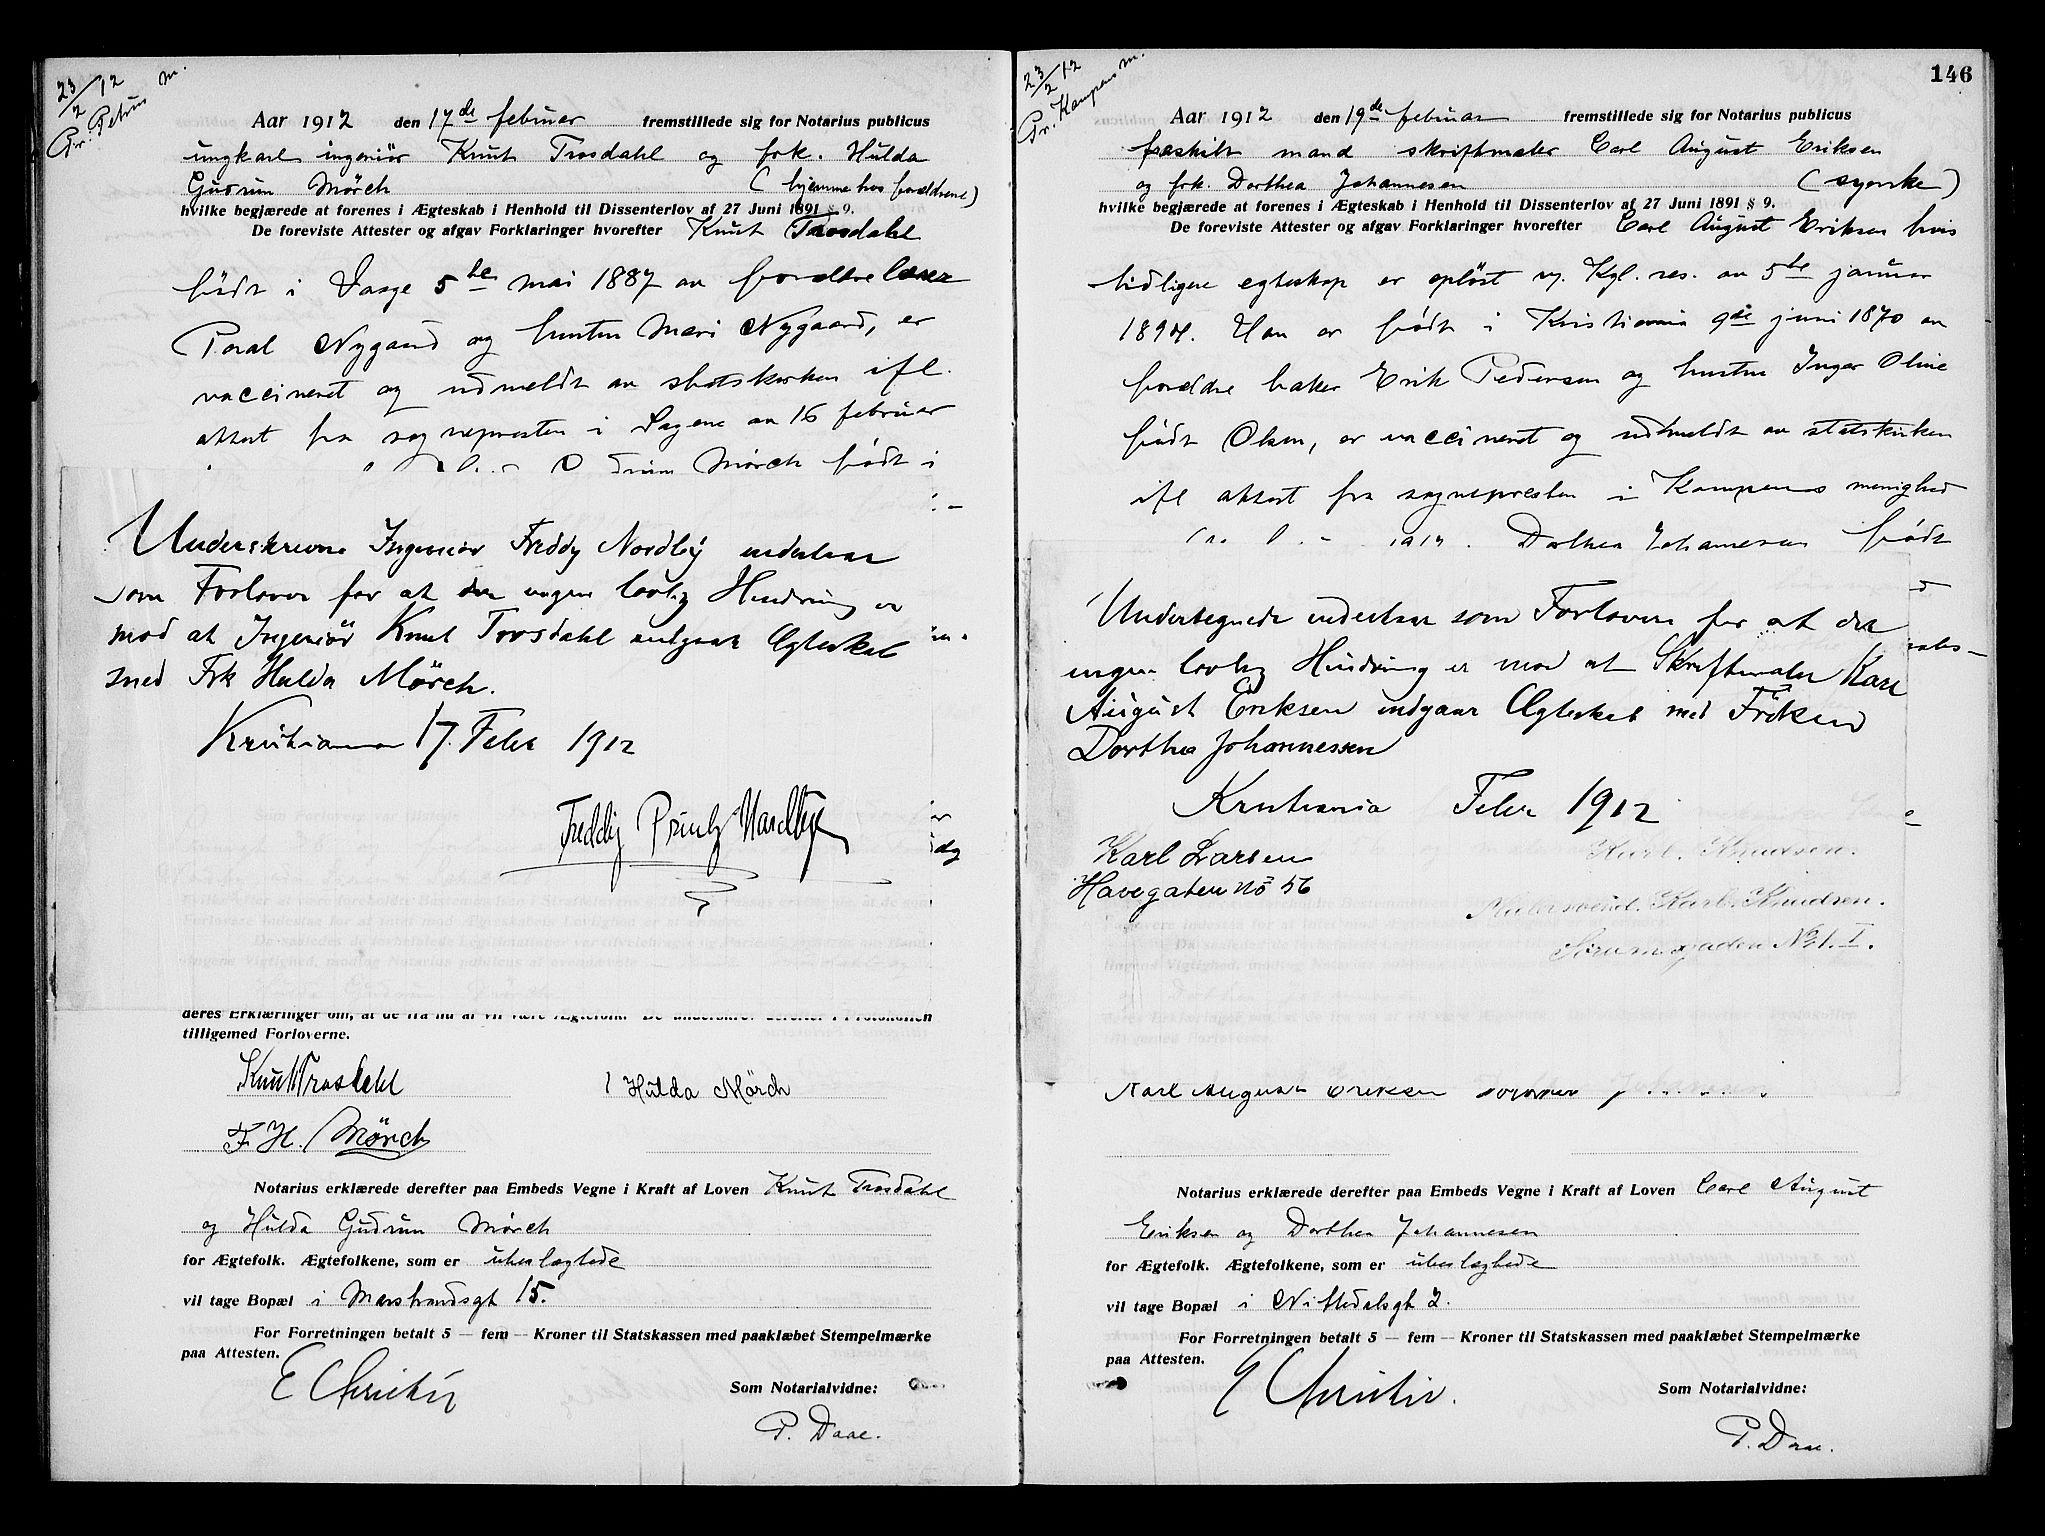 23/2 12 m.
Pr. Petrus
Aar 1912 den 17de februar fremstillede sig for Notarius publicus
ungkarl ingeniør Knut Trosdahl og frk. Hulda
Gudrun Mørch (hjemme hos forældrene)
hvilke begjærede at forenes i Ægteskab i Henhold til Dissenterlov af 27 Juni 1891 § 9.
De foreviste Attester og afgav Forklaringer hvorefter Knut Trosdahl
født i 5te mai 1887 av forældre
Nygaard og hustru Mari Nygaard, er
vaccineret og udmeldt av statskirken ifl.
attest fra sognepresten i Sagene av 16 februar
Mørch født i
Underskrevne Ingeniør Freddy Nordbÿ indestaar
som Forlover for at der ingen lovlig Hindring er
mod at Ingeniør Knut Trosdahl indgaar Ægteskab
med Frk Hulda Mörch.
Kristiania 17. Febr 1912
Freddy Printz
deres Erklæringer om, at de fra nu af vil være Ægtefolk. De underskrev derefter i Protokollen
tilligemed Forloverne.
Knut Trosdahl Hulda Mörch
F H. Mörch
Notarius erklærede derefter paa Embeds Vegne i Kraft af Loven Knut Trosdahl
og Hulda Gudrun Mørch
for Ægtefolk. Ægtefolkene, som er ubeslægtede
vil tage Bopæl i Marstrandsgt 15.
For Forretningen betalt 5 — fem — Kroner til Statskassen med paaklæbet Stempelmærke
paa Attesten.
E Christie
Som Notarialvidne:
P. Daae.
146
23/2 12
Pr. Kampens m.
Aar 1912 den 19de februar fremstillede sig for Notarius publicus
fraskilt mand skriftmaler Carl August Eriksen
og frk. Dorthea Johannesen (syerske)
hvilke begjærede at forenes i Ægteskab i Henhold til Dissenterlov af 27 Juni 1891 § 9.
De foreviste Attester og afgav Forklaringer hvorefter Carl August Eriksen hvis
tidligere egteskap er opløst v. Kgl. res. av 5te januar
Han er født i Kristiania 9de juni 1870 av
forældre baker Erik Pedersen og hustru Inger Oline
født Olsen, er vaccineret og udmeldt av statskirken
ifl attest fra sognepresten i Kampens menighed
Dorthea Johannesen født
Undertegnede indestaar som Forlovere for at der
ingen lovlig Hindring er mod at Skriftmaler Karl
August Eriksen indgaar Ægteskab med Frøken
Dorthea Johannessen
Kristiania Febr 1912
Karl Larsen
Havegaten No 56
Karl. Knudsen.
Malersvend. Karl. Knudsen.
No 1. I.
Karl August Eriksen
Notarius erklærede derefter paa Embeds Vegne i Kraft af Loven Carl August
Eriksen og Dorthea Johannesen
for Ægtefolk. Ægtefolkene, som er ubeslægtede
vil tage Bopæl i Nittedalsgt 2.
For Forretningen betalt 5 — fem — Kroner til Statskassen med paaklæbet Stempelmærke
paa Attesten.
E Christie.
Som Notarialvidne:
P. Daae.